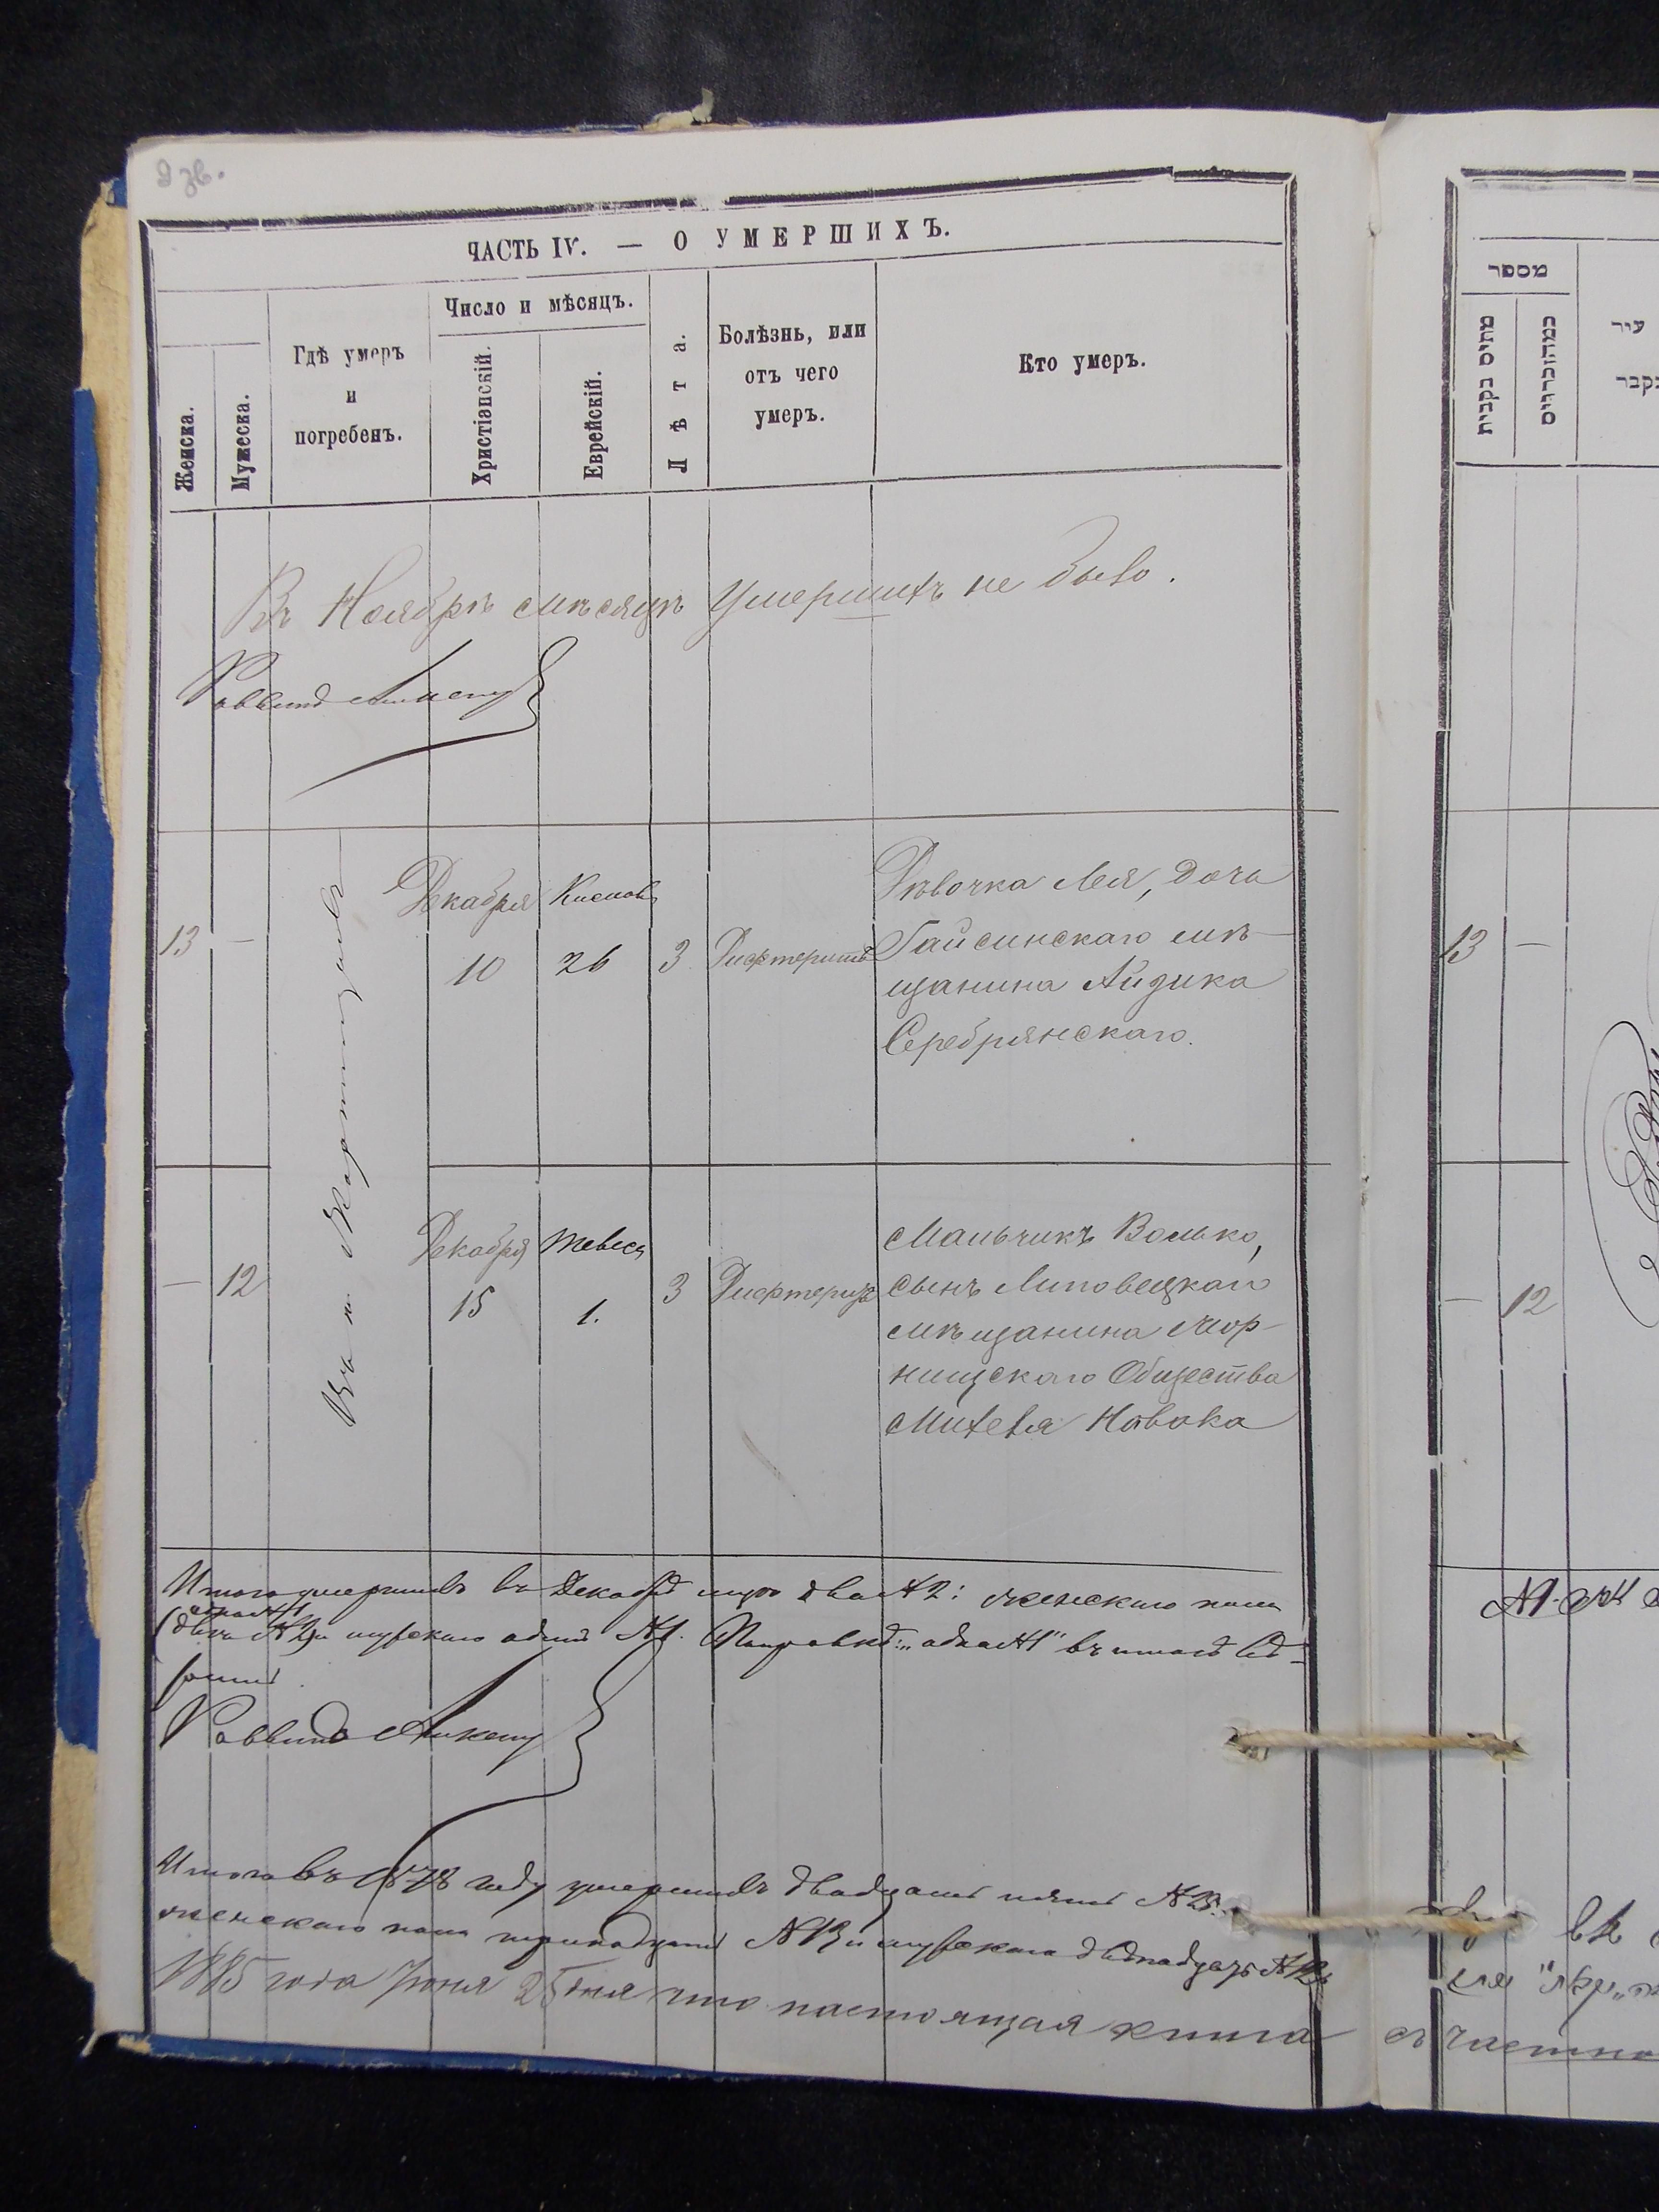 9 зв.
ЧАСТЬ IV. — О УМЕРШИХЪ.
Женска.
Мужеска.
Гдѣ умеръ
и
погребенъ.
Число и мѣсяцъ.
Христіанскій.
Еврейскій.
Лѣта.
Болѣзнь, или
отъ чего
умеръ.
Кто умеръ.
Въ Ноябрѣ мѣсяцѣ умершихъ не было.
Раввинъ
13 —
Декабря
10
Кислов
26
3
Дифтеритъ
Дѣвочка Лея, дочь
Гайсинскаго мѣ-
щанина Айзика
Серебрянскаго.
Въ м.
— 12
Декабря
15
Тевеся
1.
3
Дифтеритъ
Мальчикъ Волько,
сынъ Липовецкаго
мѣщанина
Общества
Михеля Новака
Итого умершихъ въ Декабрѣ два № 2: женскаго пола
одна №1
мужскаго одинъ №1. Поправка: „одна №1" въ итогѣ вѣ-
рны
Раввинъ
Итого въ 1878 году умершихъ двадцать пять № 25:
женскаго пола тринадцать № 13 и мужскаго двѣнадцать № 12
1885 года Іюня 25 дня что настоящая книга
מספר
מהיס נקבות
במהזכרים
עיר
13 —
— 12
въ частно